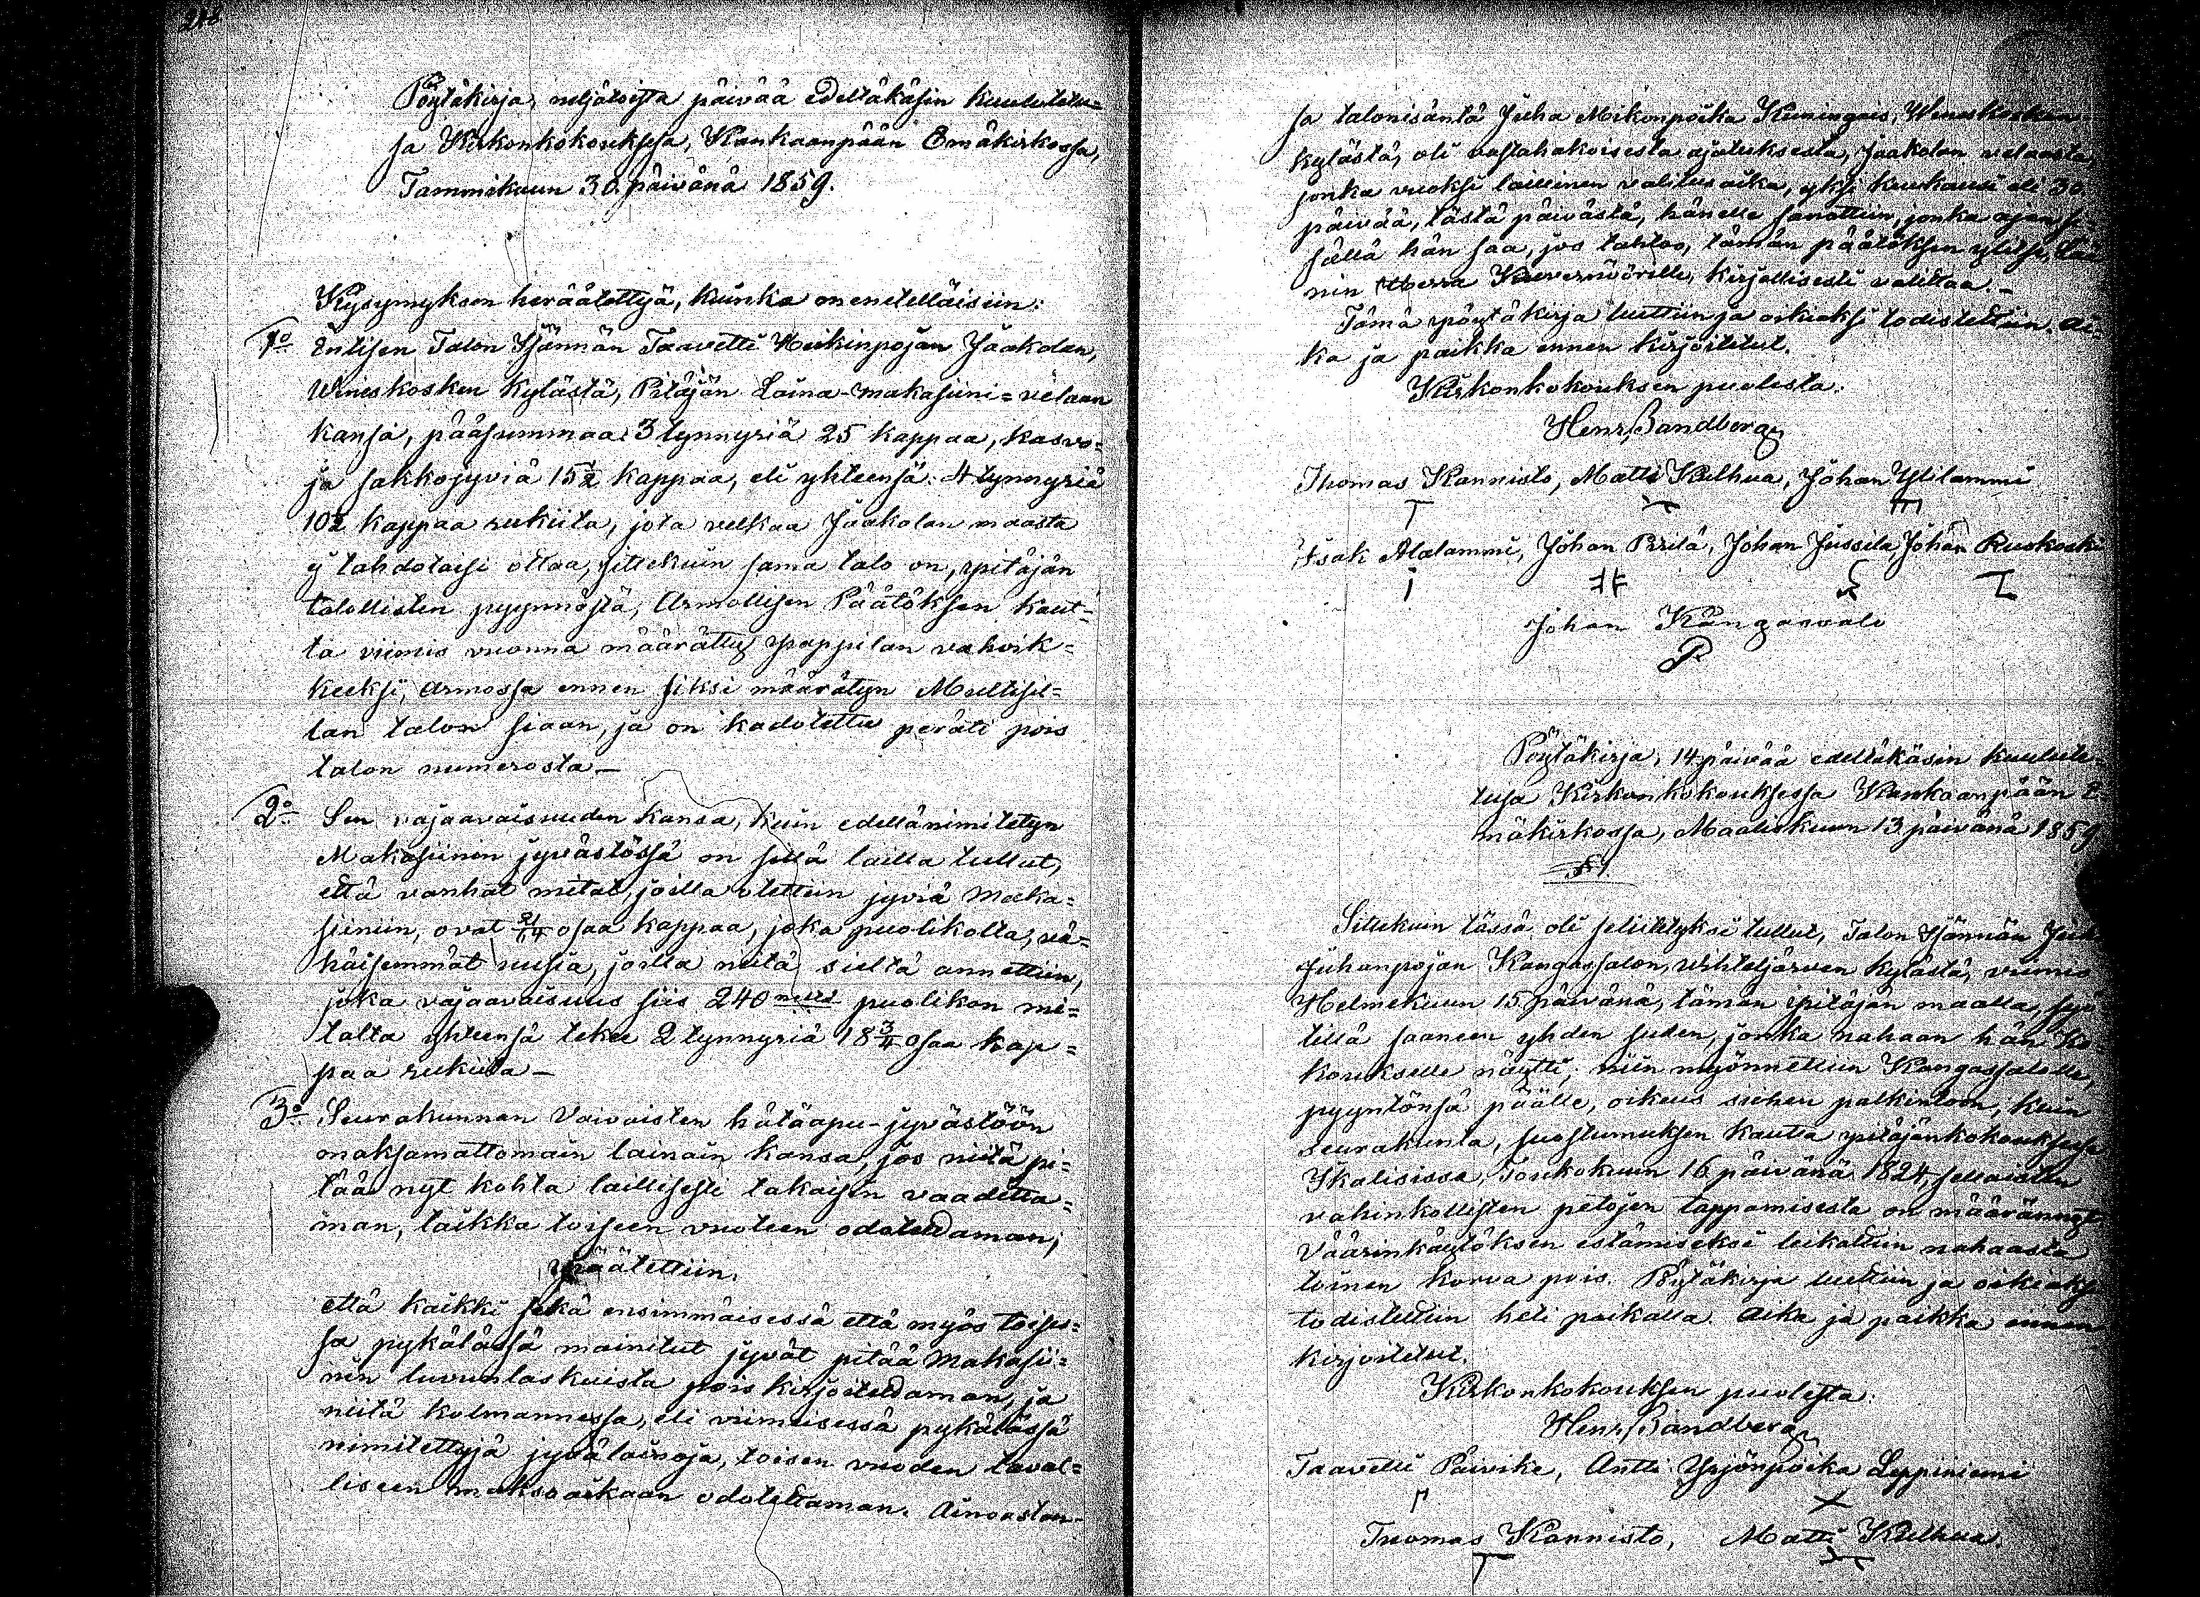 248
Pöytäkirja, neljätoista päivää edeltäkäsin kuulutetu=
sa Kirkonkokouksesa, Kankaanpään Emäkirkossa,
Tammikuun 30. päivänä 1859.
Kysymyksen heräätettyä, kuinka meneteltäisiin:
1o Entisen Talon Isännän Taavetti Heikinpojan Jaakolan,
Wineskosken kylästä, Pitäjän Laina-makasiini=velaan
kansa, pääsummaa 3 tynnyriä 25 kappaa, kasvo=
ja sakkojyviä 15½ kappaa, eli yhteensä: 4 tynnyriä
10½ kappaa rukiita, jota velkaa Jaakolan maasta
ij tahdotaisi ottaa, sittekuin sama talo on, pitäjän
talollisten pyynnöstä, Armollisen Päätöksen kaut=
ta viimis vuonna määrätty pappilan vahvik=
keeksi, Armossa ennen siksi määrätyn Multisil=
lan talon siaan, ja on kadotettu peräti pois
talon numerosta—
2o Sen vajaavaisuuden kansa, kuin edellänimitetyn
Makasiinin jyvästössä on sillä lailla tullut,
että vanhat mitat, joilla otettiin jyviä Maka=
siiniin, ovat osaa kappaa, joka puolikolta, vä=
häisemmät uusia, joilla niitä sieltä annettiin,
joka vajaavaisuus siis 240 puolikon mi=
talta yhteensä tekee 2 tynnyriä 18 osaa kap=
paa rukiita—
3o Seurakunnan Vaivaisten hätäapu-jyvästöön
maksamattomain lainain kansa, jos niitä pi=
tää nyt kohta laillisesti takaisin vaaditta=
man, taikka toiseen vuoteen odotettaman;
Päätettiin,
että kaikki sekä ensimmäisessä että myös toises=
sa pykälässä mainitut jyvät pitää Makasii=
nin luvunlaskuista pois kirjoitettaman, ja
niitä kolmannessa, eli viimeisessä pykälässä
nimitettyjä jyvälainoja, toisen vuoden taval=
liseen maksoaikaan odotettaman. Ainoastan-
sa talonisäntä Juha Mikonpoika Kuningais, Wineskosken
kylästä, oli vastahakoisesta ajatuksesta, Jaakolan velaasta,
jonka vuoksi laillinen valitusaika, yksi kuukausi eli 30.
päivää, tästä päivästä, hänelle sanottiin, jonka ajan si=
sällä hän saa, jos tahtoo, tämän päätöksen ylitse, Lää
nin Herra Kuvernöörille, kirjallisesti valittaa.—
Tämä pöytäkirja luettiin ja oikiaksi todistettiin. Ai=
ka ja paikka ennen kirjoitetut.
Kirkonkokouksen puolesta:
Henr. Sandberg
Thomas Kannisto, Matti Kulhua, Johan Ylilammi
Isak Alalammi, Johan Prilä, Johan Jussila, Johan Ruokoski
Johan Kangasvalo
Pöytäkirja, 14 päivää edeltäkäsin kuulute=
tusa Kirkonkokouksessa Kankaanpään E=
mäkirkossa, Maaliskuun 13 päivänä 1859
§ 1
Sittekuin tässä oli selitetyksi tullut, Talon Isännän Juha
Juhanpojan Kangassalon, Wihteljärven kylästä, viimis
Helmekuun 15 päivänä, tämän pitäjän maalla, syö=
tillä saaneen yhden suden, jonka nahaan hän Ko=
koukselle näytti; niin myönnettiin Kangassalolle,
pyyntönsä päälle, oikeus siihen palkintoon, kuin
seurakunta, suostumuksen kautta pitäjänkokouksesa
Ikalisissa, Toukokuun 16 päivänä 1824, sellaisten
vahinkollisten petojen tappamisesta on määrännyt
Väärinkäytöksen estämiseksi leikattiin nahaasta
toinen korva pois. Pöytäkirja luettiin ja oikiaksi
todistettiin heti paikalla. Aika ja paikka ennen
kirjoitetut.
Kirkonkokouksen puolesta:
Henr. Sandberg
Taavetti Päivike, Antti Yrjönpoika Leppiniemi
Tuomas Kannisto, Matti Kulhua.